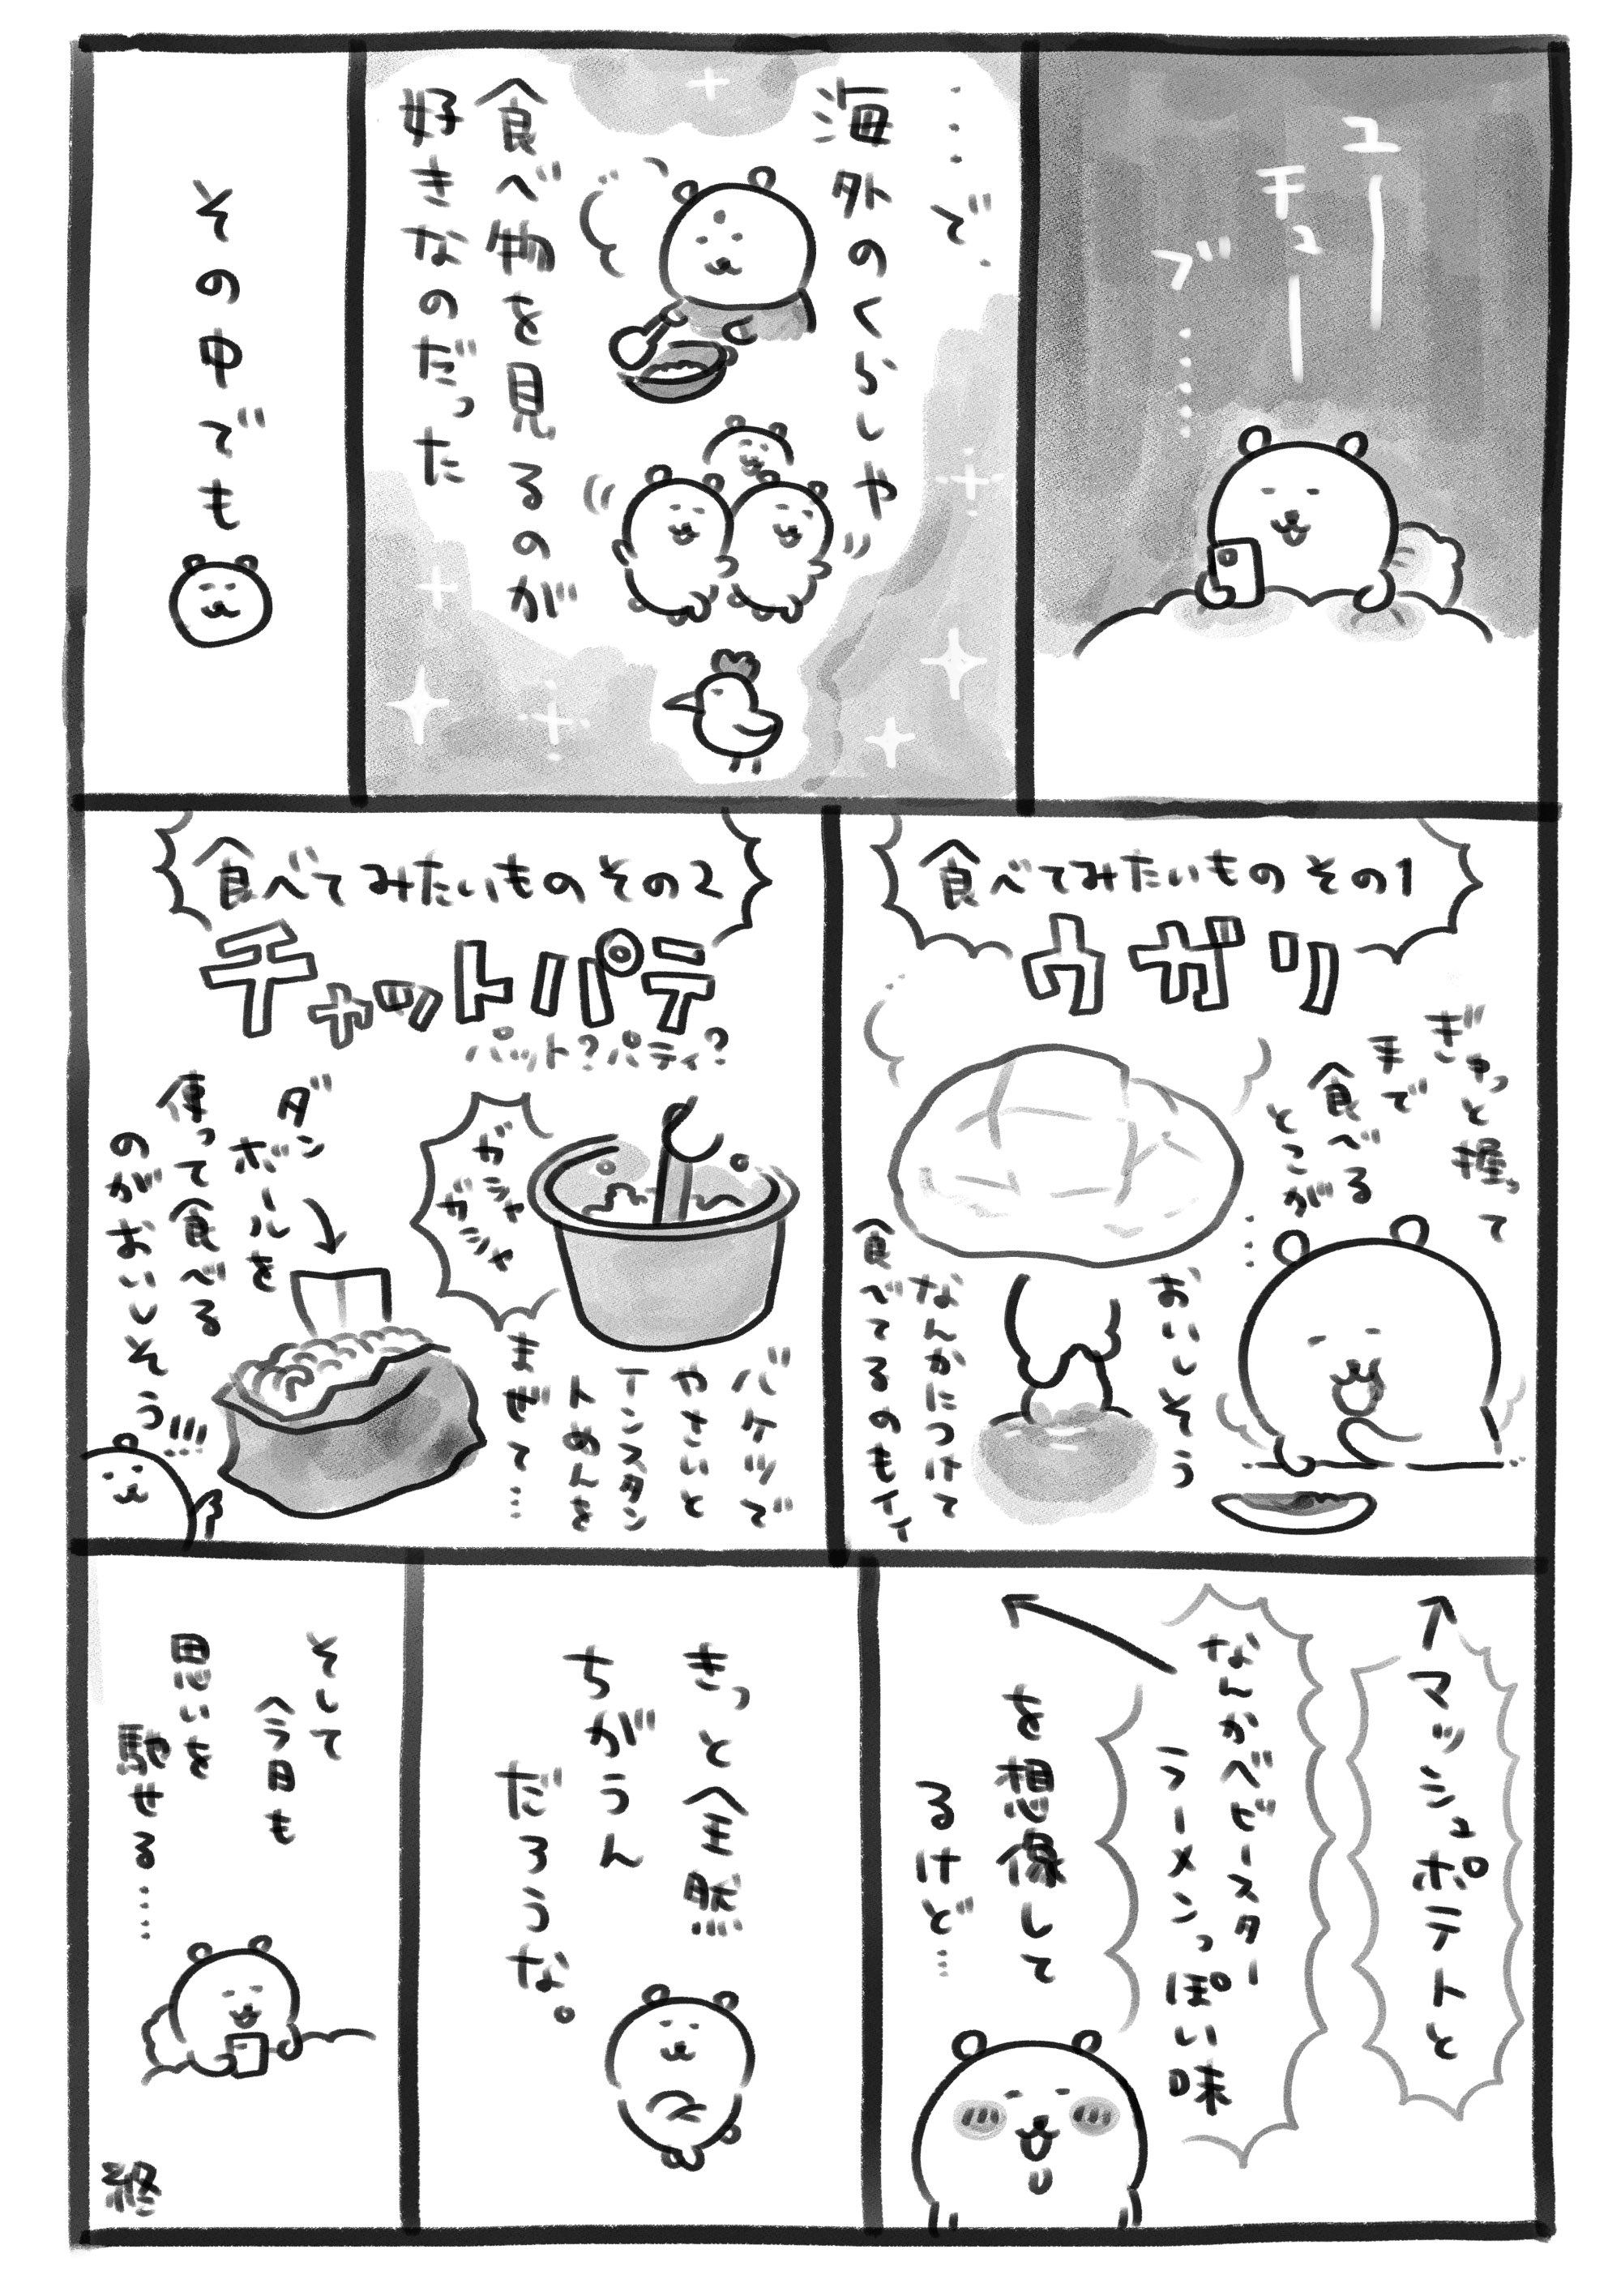 ユー
チュー
ブ‥‥‥
‥‥で.
海外のくらしや
食べ物を見るのが
好きなのだった
その中でも
食べてみたいもの その1
ウガリ
ぎゅっと握って
手で
食べる
とこが
‥‥
おいしそう
なんかにつけて
食べてるのもイイ
食べてみたいもの その2
チャットパテ
パット?パティ?
バケツで
やさいと
インスタン
トめんを
まぜて‥‥
ガシャ
ガシャ
ダンボールを
使って食べる
のがおいしそう!!!
マッシュポテトと
なんかベビースター
ラーメンっぽい味
を想像して
るけど‥‥
きっと全然
ちがうん
だろうな。
そして
今日も
思いを
馳せる‥‥‥
終